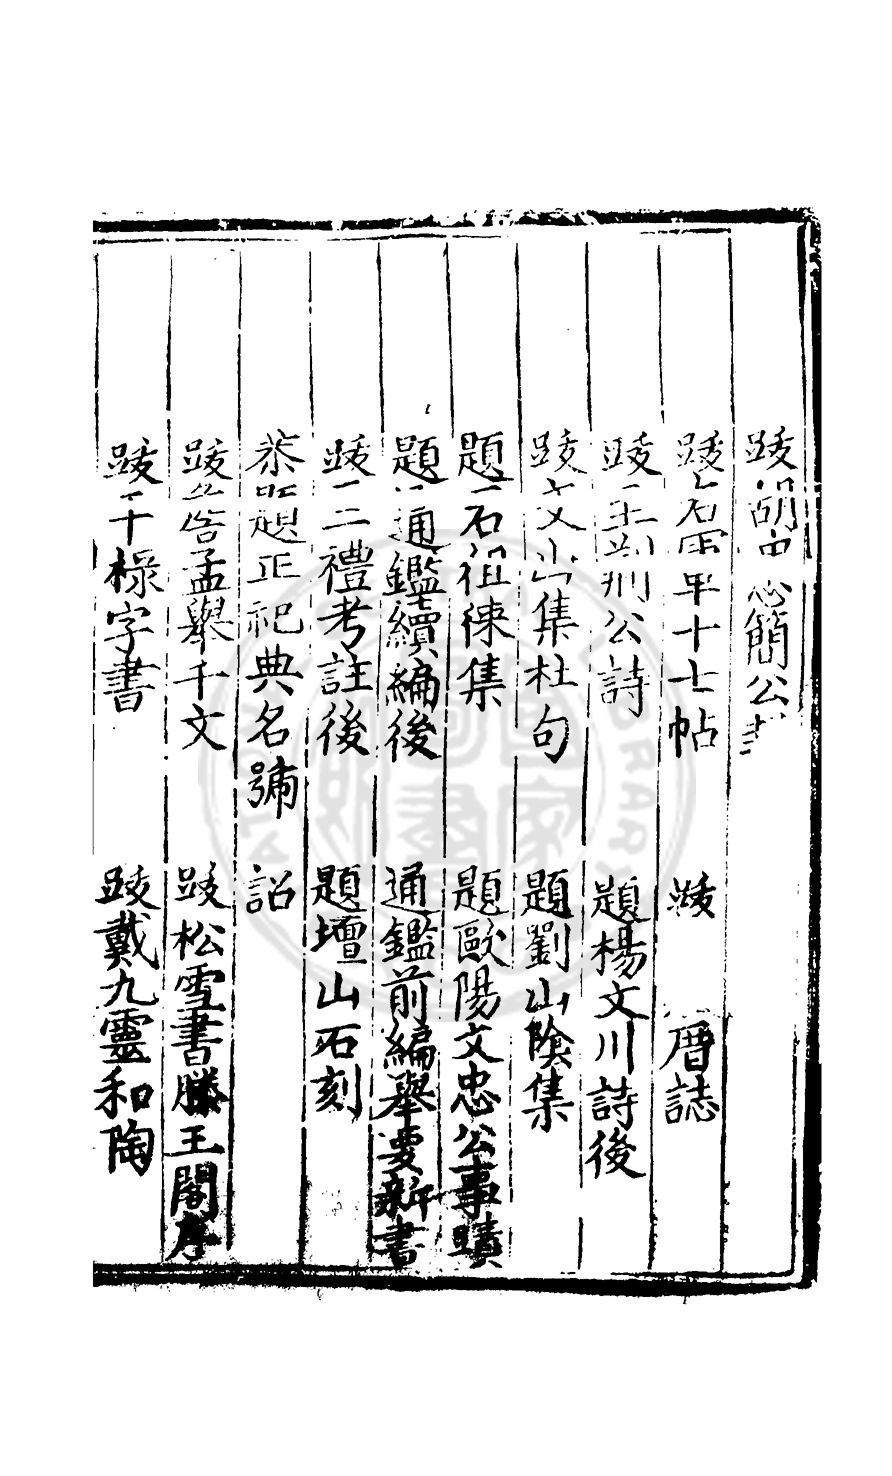 跋胡忠簡公書
跋右軍十七帖　跋　厝誌
跋王荆公詩　題楊文川詩後
跋文山集杜句　題劉山陰集
題石徂徠集　題歐陽文忠公事蹟
題通鑑續編後　通鑑前編舉要新書
跋三禮考註後　題壇山石刻
恭題正祀典名號　詔
跋孟舉千文　跋松雪書滕王閣序
跋干祿字書　跋戴九靈和陶